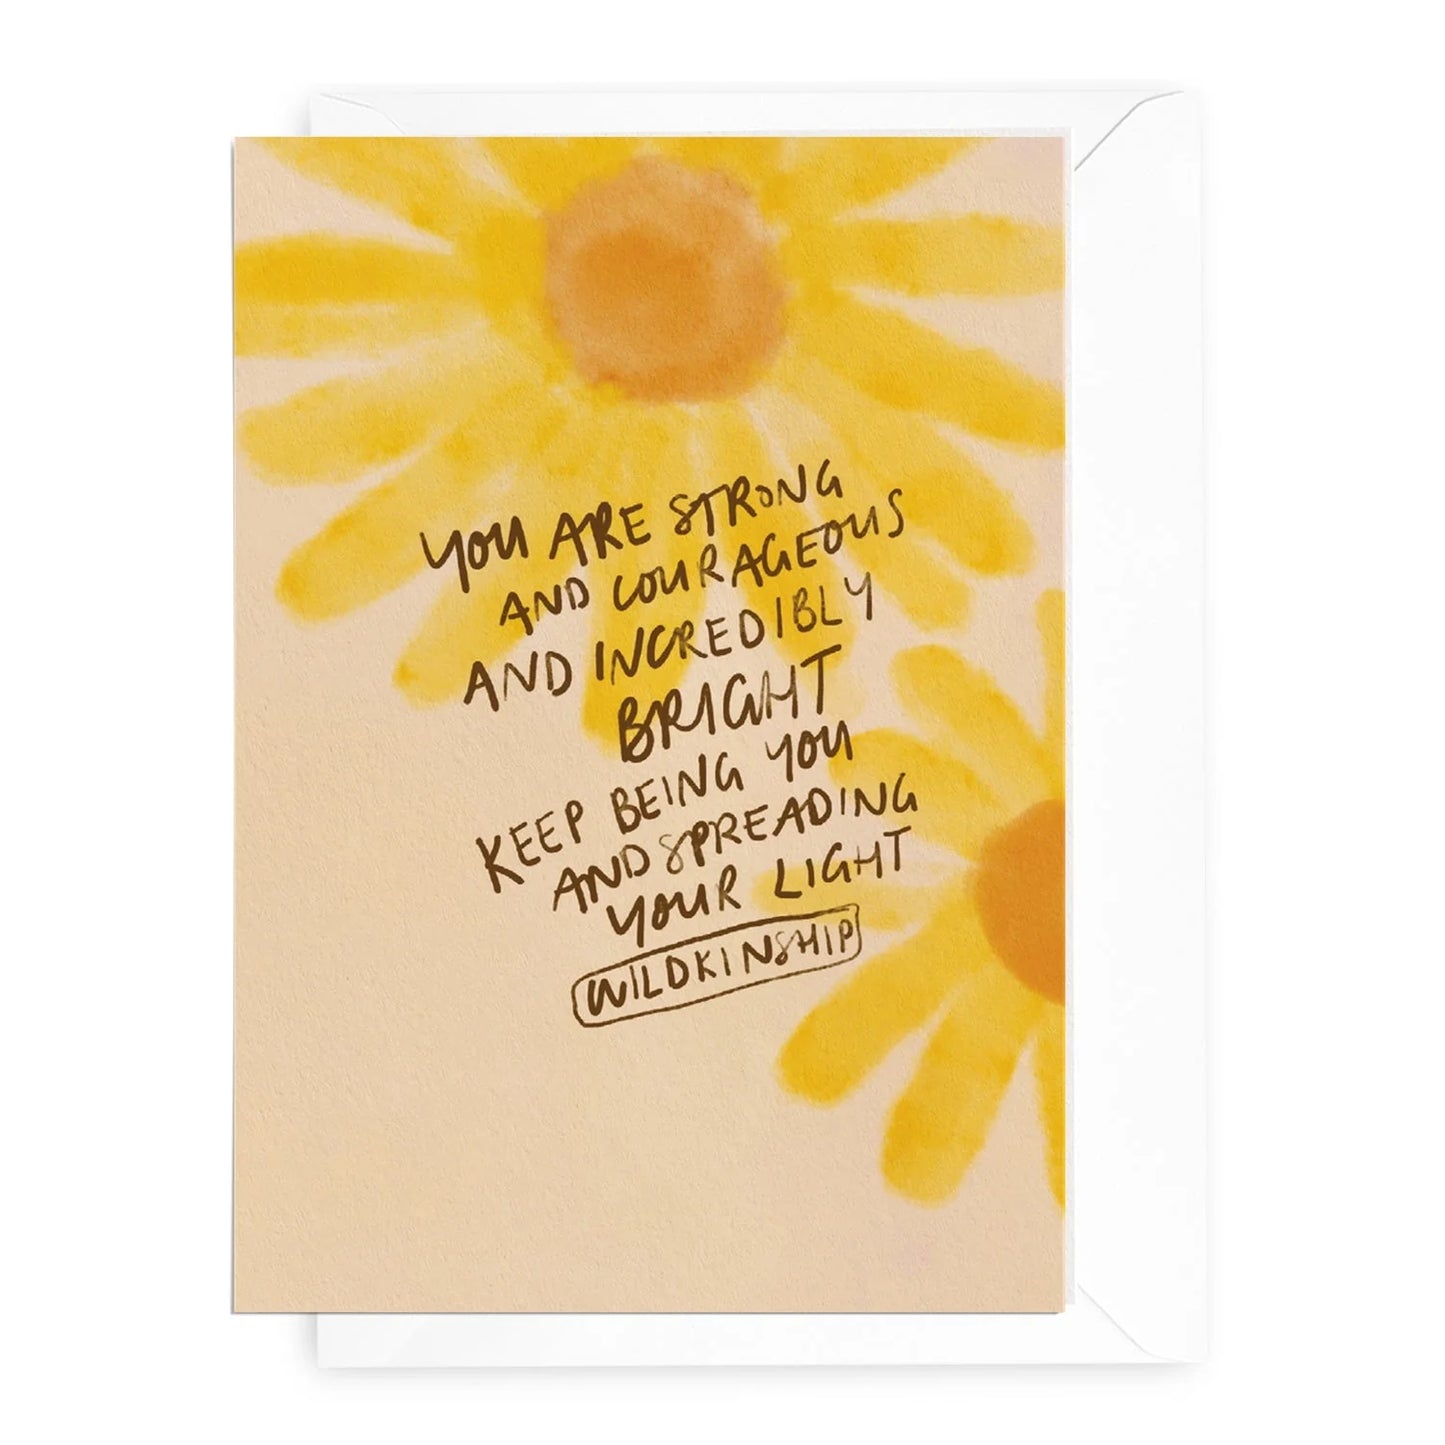 YOU ARE STRONG
AND COURAGEOUS
AND INCREDIBLY
BRIGHT
KEEP BEING YOU
AND SPREADING
YOUR LIGHT
WILDKINSHIP